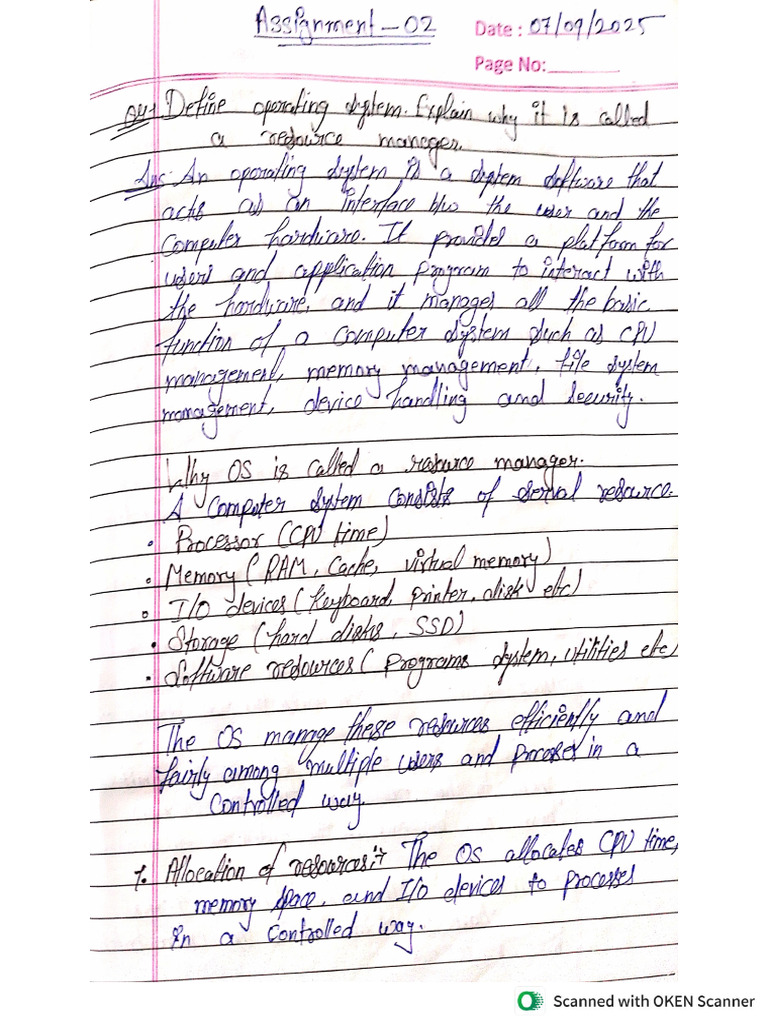 Assignment - 02
Date : 07/09/2025
Page No:
Q1 Define operating system. Explain why it is called
a resource manager.
Ans: An operating system is a system software that
acts as an interface b/w the user and the
computer hardware. It provides a platform for
users and application program to interact with
the hardware, and it manages all the basic
function of a computer system such as CPU
management, memory management, file system
management, device handling and security.
Why OS is called a resource manager.
A computer system consists of serval resource.
• Processor (CPU time)
• Memory (RAM, Cache, virtual memory)
• I/O devices (keyboard, printer, disk etc)
• Storage (hard disks, SSD)
• Software resources ( programs system, utilities etc)
The OS manage these resources efficiently and
fairly among multiple users and processes in a
controlled way.
1. Allocation of resources:- The OS allocates CPU time,
memory space, and I/O devices to processes
in a controlled way.
Scanned with OKEN Scanner